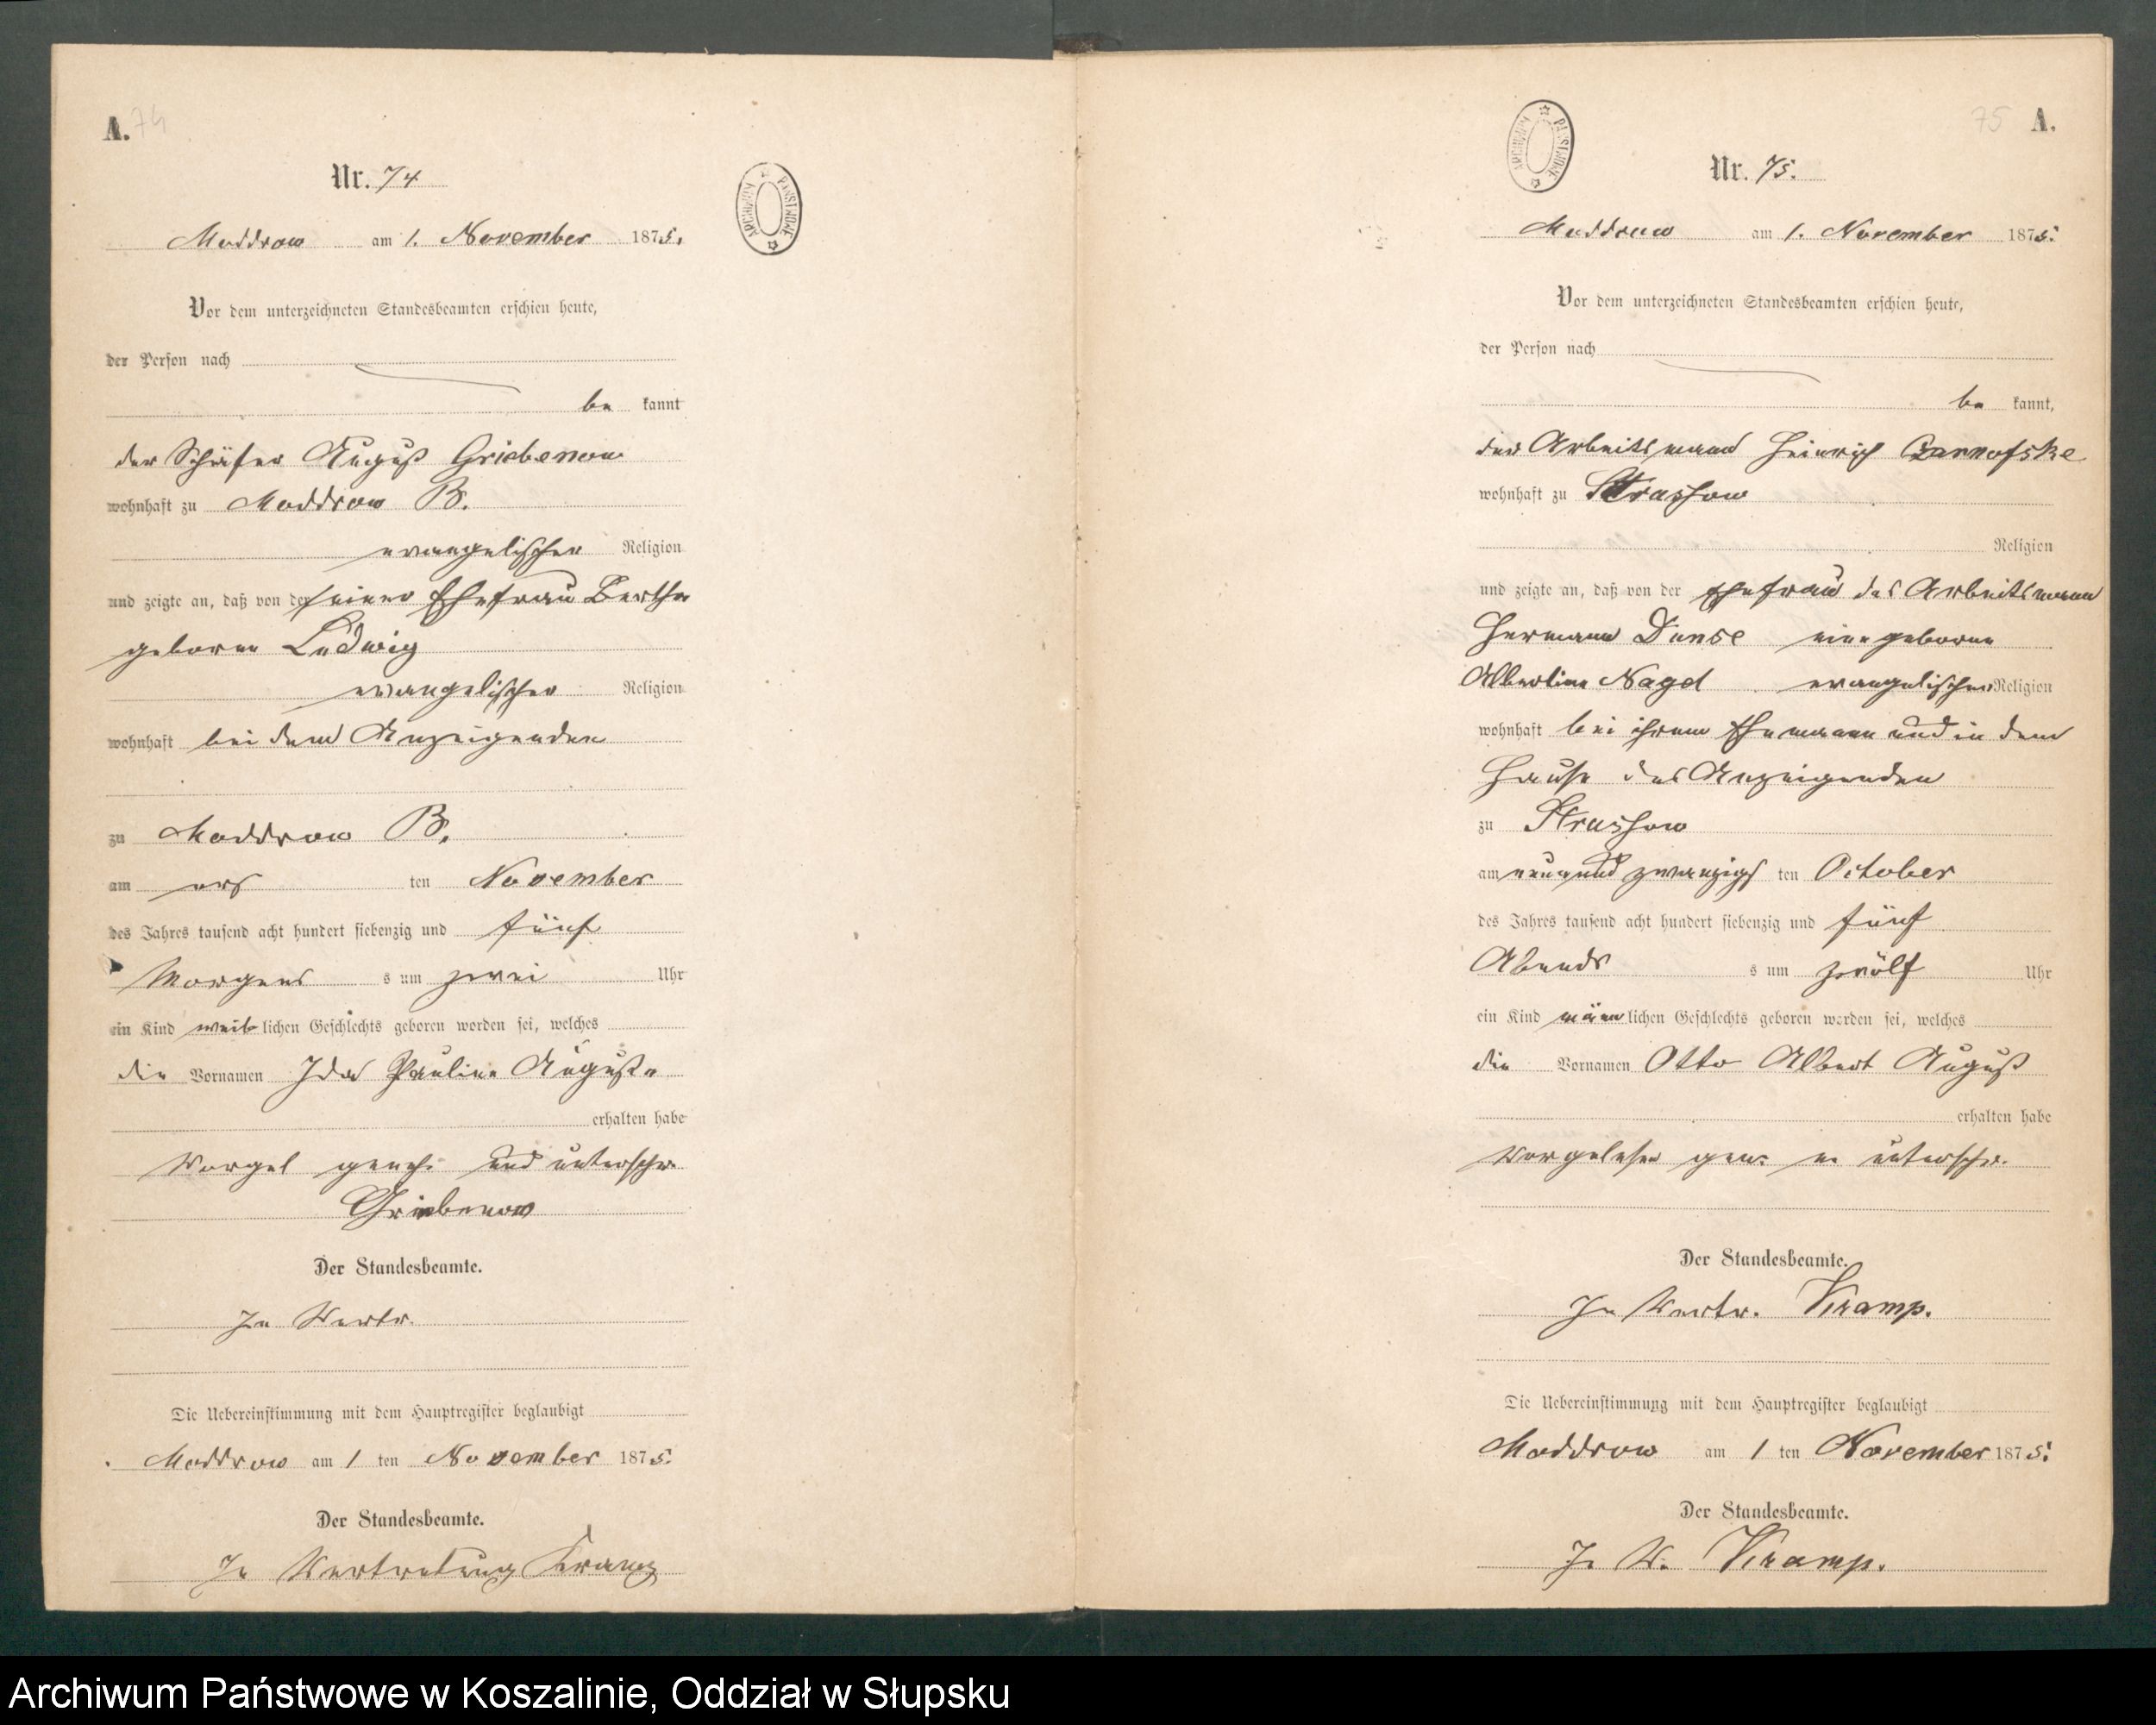 A. 74
Nr. 74
Moddrow am 1. November 1875.
ARCHIWUM PAŃSTWOWE
Vor dem unterzeichneten Standesbeamten erschien heute,
der Person nach
be kannt
der Schäfer August Griebenow
wohnhaft zu Moddrow B.
evangelischer Religion
und zeigte an, daß von der seiner Ehefrau Bertha
geborne Ludwig
evangelischer Religion
wohnhaft bei dem Anzeigenden
zu Moddrow B.
am ers ten November
des Jahres tausend acht hundert siebenzig und fünf
Morgens s um zwei Uhr
ein Kind weib lichen Geschlechts geboren worden sei, welches
die Vornamen Ida Pauline Auguste
erhalten habe
Vorgel geneh: und unterschr
Griebenow
Der Standesbeamte.
In Vertr.
Die Uebereinstimmung mit dem Hauptregister beglaubigt
Moddrow am 1 ten November 1875.
Der Standesbeamte.
In Vertretung
75 A.
ARCHIWUM PAŃSTWOWE
Nr. 75.
Moddrow am 1. November 1875.
Vor dem unterzeichneten Standesbeamten erschien heute,
der Person nach
be kannt,
der Arbeitsmann Heinrich
wohnhaft zu Strussow
Religion
und zeigte an, daß von der Ehefrau des Arbeitsmann
Hermann Dunse eine geborne
Albertine Nagel evangelischer Religion
wohnhaft bei ihrem Ehemann und in dem
Hause des Anzeigenden
zu Strussow
am neunund zwanzigs ten October
des Jahres tausend acht hundert siebenzig und fünf
Abends s um zwölf Uhr
ein Kind männ lichen Geschlechts geboren worden sei, welches
die Vornamen Otto Albert August
erhalten habe
Vorgelesen gen: u unterschr.
Der Standesbeamte.
In Vertr. Kramp.
Die Uebereinstimmung mit dem Hauptregister beglaubigt
Moddrow am 1 ten November 1875.
Der Standesbeamte.
In V. Kramp.
Archiwum Państwowe w Koszalinie, Oddział w Słupsku